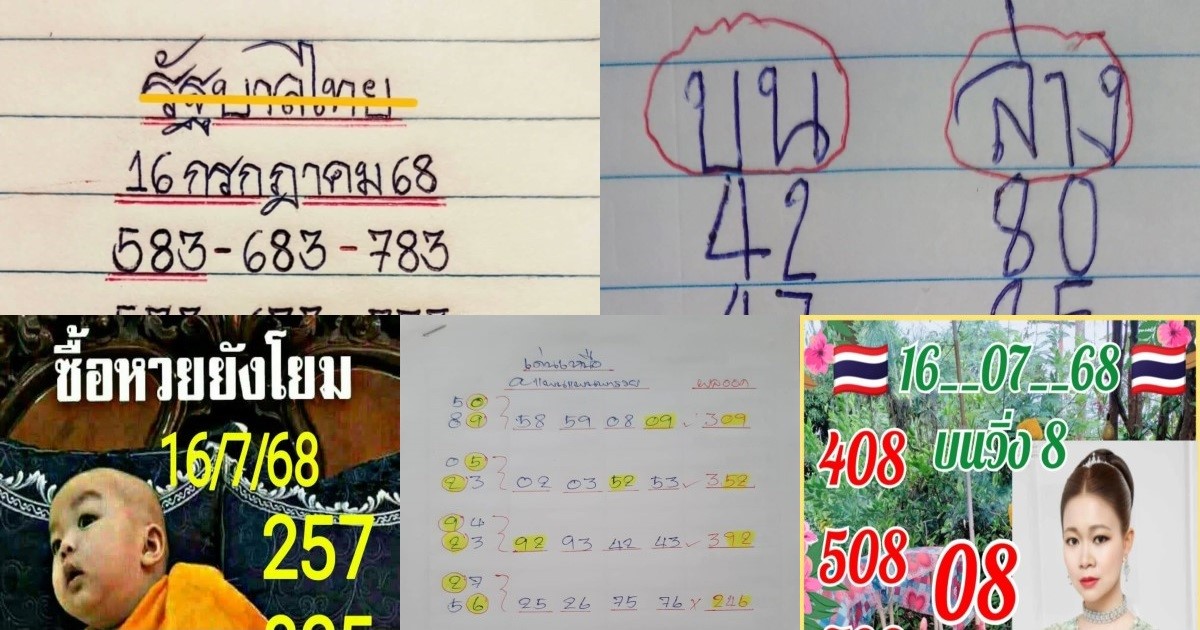 รัฐบาลไทย
16 กรกฎาคม 68
583-683-783
บน ล่าง
42 80
ซื้อหวยยังโยม
16/7/68
257
ผลออก
50
89 58 59 08 09 ✓ 309
05
23 02 03 52 53 ✓ 352
94
23 92 93 42 43 ✓ 392
27
56 25 26 75 76 × 226
16__07__68
408 บนวิ่ง 8
508 08